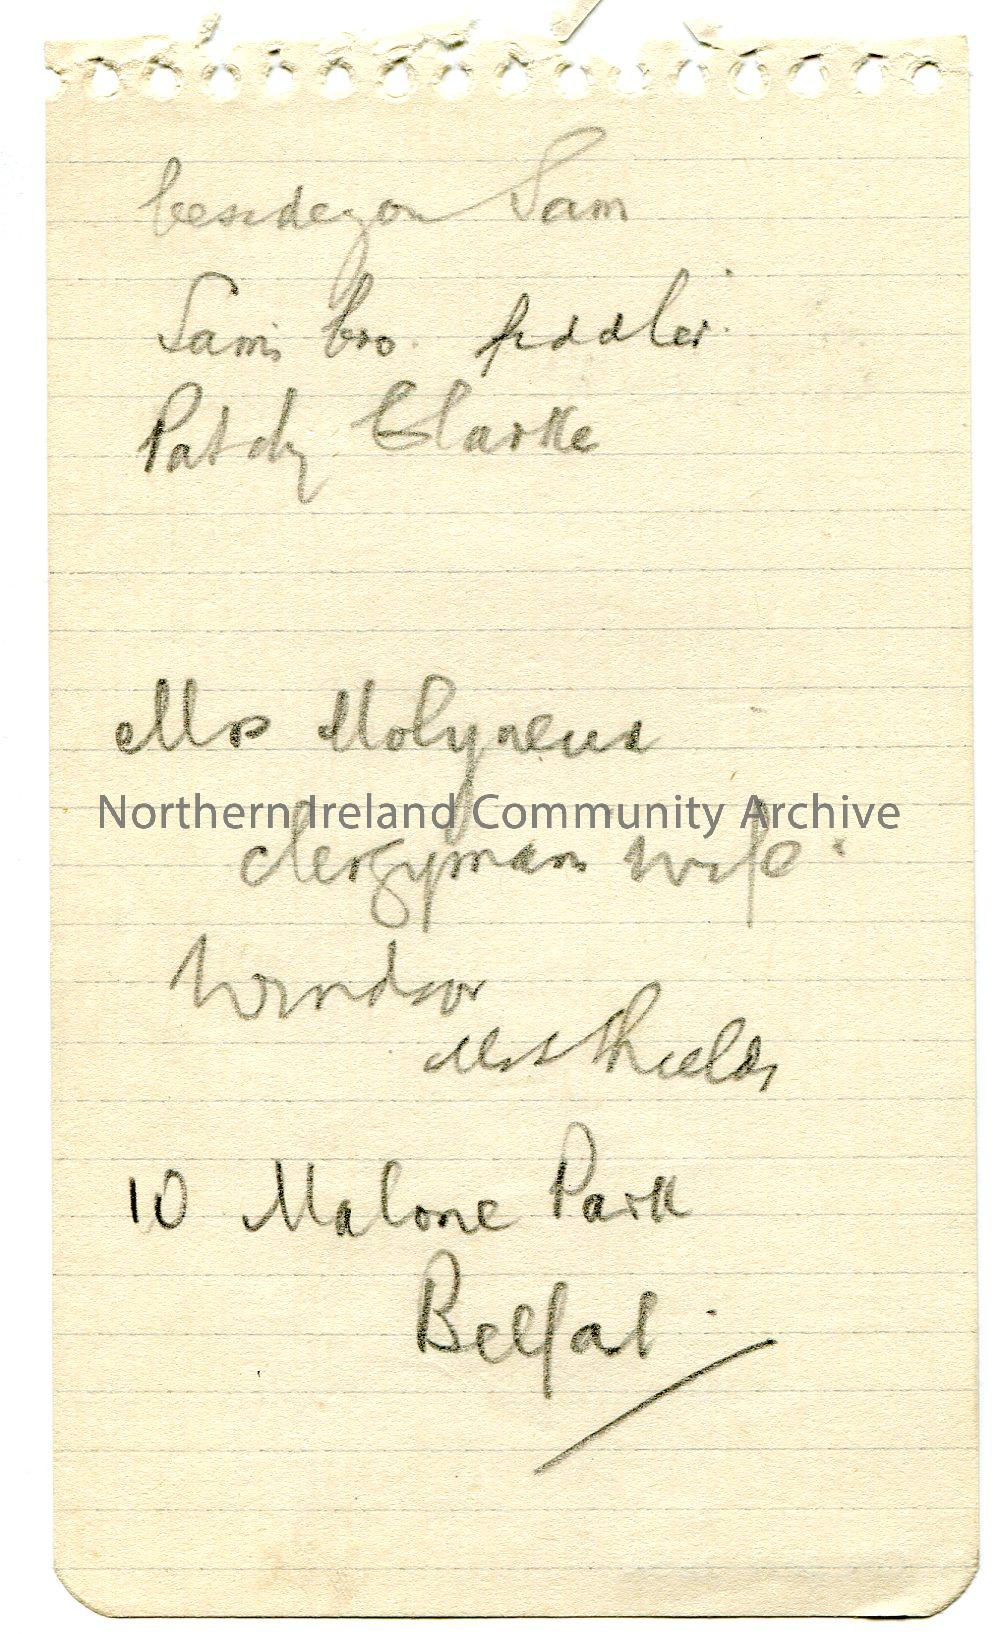 Sam
Sam's bro. fiddler.
Patdy Clarke
Mrs Molyneux
Northern Ireland Community Archive
clergyman wife.
Windsor
Mrs Shields
10 Malone Park
Belfast.